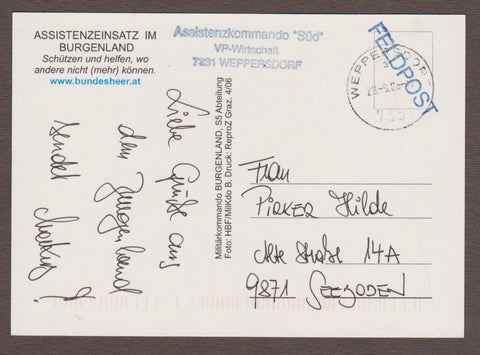 ASSISTENZEINSATZ IM
BURGENLAND
Schützen und helfen, wo
andere nicht (mehr) können.
www.bundesheer.at
Assistenzkommando "Süd"
VP-Wirtschaft
7331 WEPPERSDORF
FELDPOST
WEPPERSDORF
7331
Liebe Grüße aus
dem Burgenland
sendet
Militärkommando BURGENLAND, S5 Abteilung
Foto: HBF/MilKdo B, Druck: ReproZ Graz, 4/06
Frau
PIRKER Hilde
Alte Straße 14A
9871 SEEBODEN